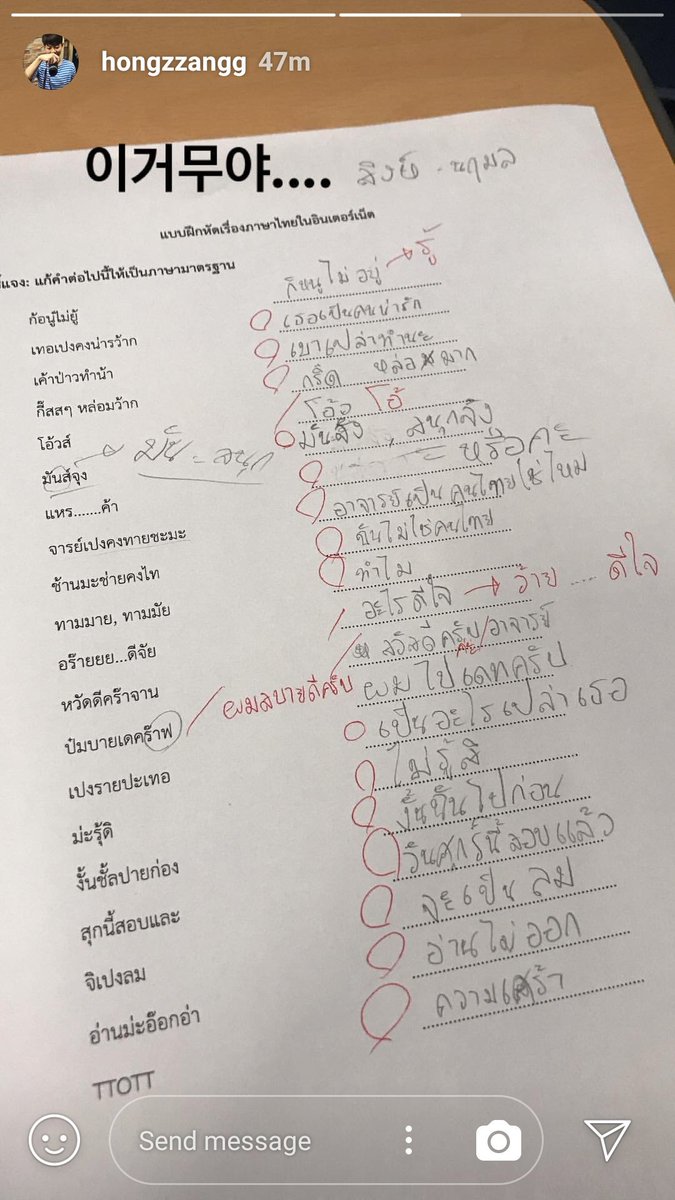 hongzzangg 47m
이거무야.... สิงห์ - นฤมล
แบบฝึกหัดเรื่องภาษาไทยในอินเตอร์เน็ต
แจง: แก้คำต่อไปนี้ให้เป็นภาษามาตรฐาน
ก้อนู๋ไม่ยู้ ก็หนูไม่อยู่ → รู้
เทอเปงคงน่ารว้าก เธอเป็นคนน่ารัก
เค้าป่าวทำน้า เขาเปล่าทำนะ
กี๊สสๆ หล่อมว้าก กรี๊ด หล่อมาก
โอ้วส์ โอ้ว โอ้
มันส์จุง → มัน - สนุก มันจัง , สนุกจัง
แหร.......ค้า หรือคะ
จารย์เปงคงทายชะมะ อาจารย์เป็นคนไทยใช่ไหม
ช้านมะช่ายคงไท ฉันไม่ใช่คนไทย
ทามมาย, ทามมัย ทำไม
อร๊ายยย...ดีจัย อะไรดีใจ → ว้าย .... ดีใจ
หวัดดีคร๊าจาน สวัสดีครับ/อาจารย์ ค่ะ
ป๋มบายเดคร๊าฟ ผมสบายดีครับ ผมไปเดทครับ
เปงรายปะเทอ เป็นอะไรเปล่าเธอ
ม่ะรุ้ดิ ไม่รู้สิ
งั้นชั้ลปายก่อง งั้นฉันไปก่อน
สุกนี้สอบและ วันศุกร์นี้สอบแล้ว
จิเปงลม จะเป็นลม
อ่านม่ะอ๊อกอ่า อ่านไม่ออก
TTOTT ความเศร้า
Send message